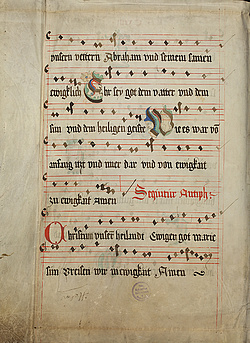 vnsern vettern Abraham vnd seinem samen
ewigklich Ehr sey got dem vatter vnd dem
sun vnd dem heiligen geiste Wie es war vō
anfang vnd vnd ewigkait
zu ewigkait Amen Sequitur Antiph:
Christum vnsern heilandt Ewigen got marie
sun Preisen wir in ewigkait Amen